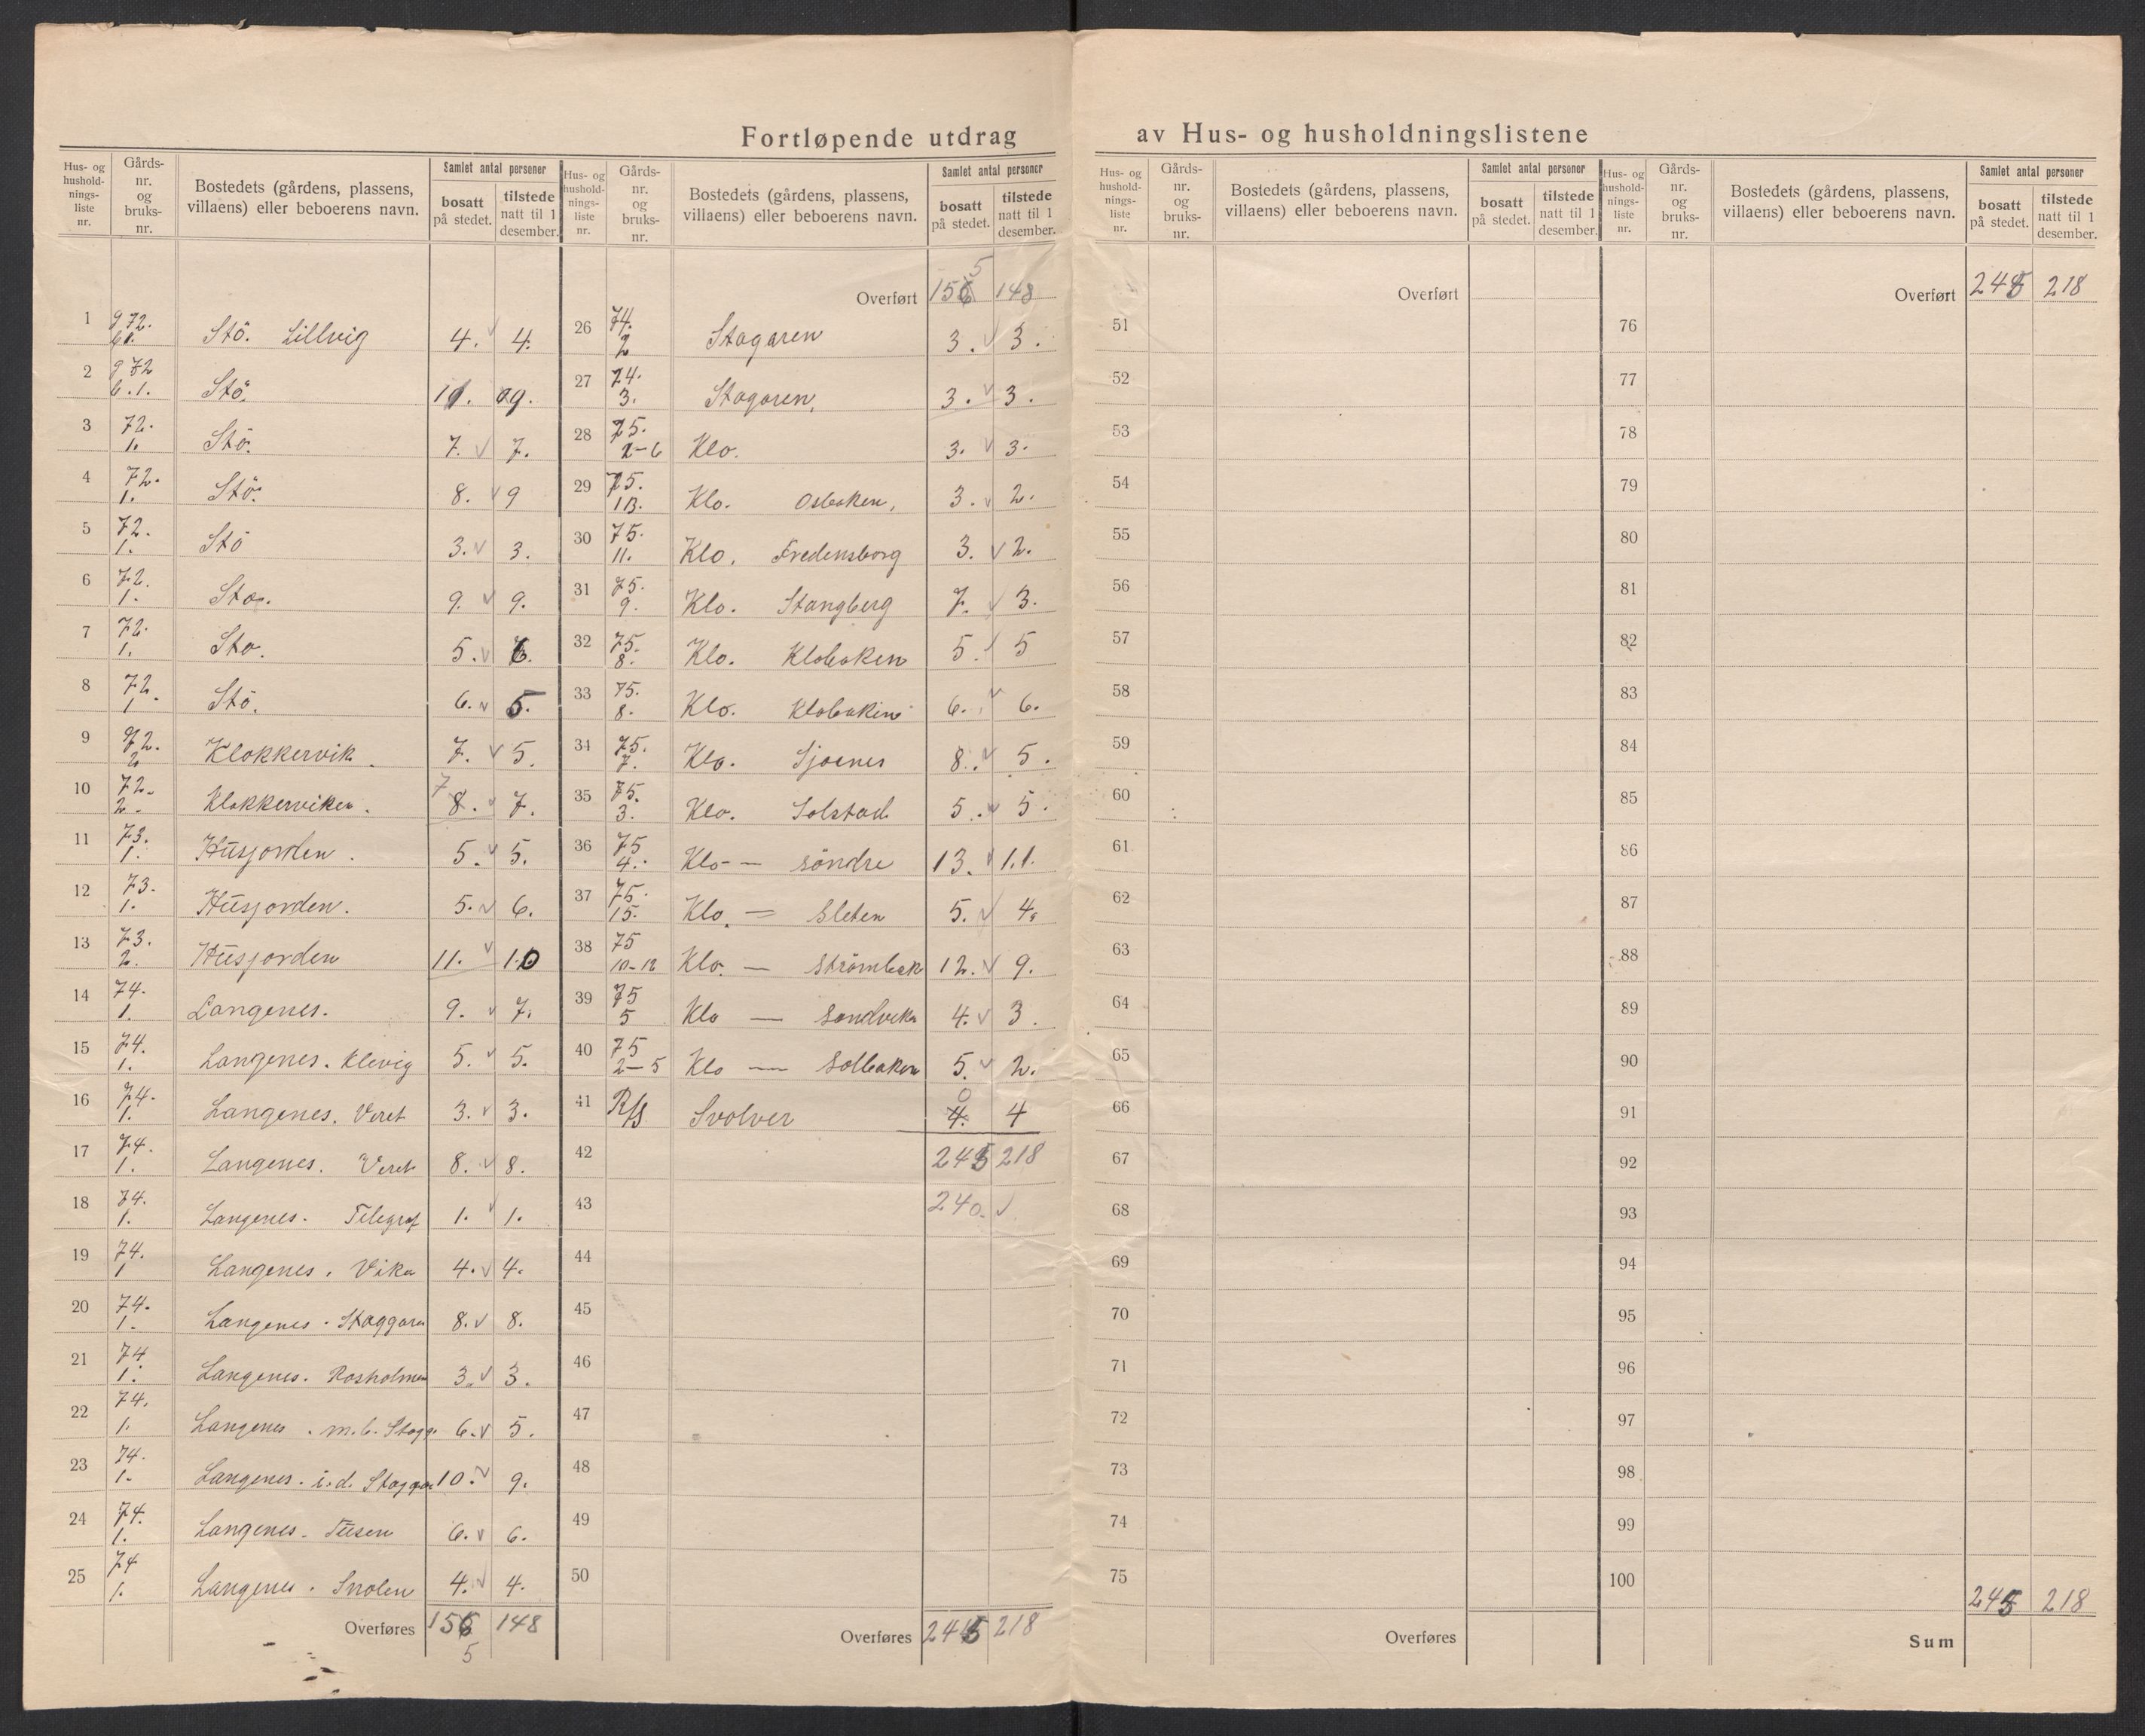 Fortløpende utdrag av Hus- og husholdningslistene
Hus- og hushold-nings-liste nr. | Gårds-nr. og bruks-nr. | Bostedets (gårdens, plassens, villaens) eller beboerens navn. | Samlet antal personer | bosatt på stedet. | tilstede natt til 1 desember.
1 | g 72. b 1. | Stö. Lillvig | 4. | 4.
2 | g 72 b.1. | Stö. | 11. | 9.
3 | 72. 1. | Stö. | 7. | 7.
4 | 72. 1. | Stö. | 8. | 9
5 | 72. 1. | Stö | 3. | 3.
6 | 72. 1. | Sto. | 9. | 9.
7 | 72. 1. | Sto. | 5. | 6.
8 | 72. 1 | Stö. | 6. | 5.
9 | 72. 2 | Klokkervik. | 7. | 5.
10 | 72. 2. | Klokkerviken. | 7 8. | 7.
11 | 73. 1. | Husjorden. | 5. | 5.
12 | 73. 1. | Husjorden. | 5. | 6.
13 | 73. 2. | Husjorden | 11. | 10
14 | 74. 1. | Langenes. | 9. | 7.
15 | 74. 1. | Langenes. Klevig | 5. | 5.
16 | 74. 1. | Langenes. Veret | 3. | 3.
17 | 74. 1. | Langenes. Veret | 8. | 8.
18 | 74. 1. | Langenes. Telegraf | 1. | 1.
19 | 74. 1 | Langenes. Vika | 4. | 4.
20 | 74. 1. | Langenes. Staggaren | 8. | 8.
21 | 74. 1. | Langenes. Rosholmen | 3. | 3.
22 | 74. 1. | Langenes. m.b. Stagg. | 6. | 5.
23 | 74. 1. | Langenes. i.d. Staggar | 10. | 9.
24 | 74. 1. | Langenes. | 6. | 6.
25 | 74 1. | Langenes. | 4. | 4.
Overføres | 156 5 | 148
Hus- og hushold-nings-liste nr. | Gårds-nr. og bruks-nr. | Bostedets (gårdens, plassens, villaens) eller beboerens navn. | Samlet antal personer | bosatt på stedet. | tilstede natt til 1 desember.
Overført | 156 5 | 148
26 | 74. 2 | Stagaren | 3. | 3.
27 | 74. 3. | Stagaren, | 3. | 3.
28 | 75. 2-6 | Klo. | 3. | 3.
29 | 75. 13. | Klo. Osbaken, | 3. | 2.
30 | 75. 11. | Klo. Fredensborg | 3. | 2.
31 | 75. 9. | Klo. Stangberg | 7. | 3.
32 | 75. 8. | Klo. Klobaken | 5. | 5
33 | 75. 8. | Klo. Klobakken | 6. | 6.
34 | 75. 7. | Klo. Sjoenes | 8. | 5.
35 | 75. 3. | Klo. Solstad | 5. | 5.
36 | 75 4. | Klo - söndre | 13. | 11.
37 | 75. 15. | Klo. - Sleten | 5. | 4.
38 | 75 10-12 | Klo. - Strömbak | 12. | 9.
39 | 75 5 | Klo - Sandvika | 4. | 3.
40 | 75 2-5 | Klo - Solbaken | 5. | 2.
41 | R/S | Svolver | 0 4. | 4
42 | 245 | 218
43 | 240.
44
45
46
47
48
49
50
Overføres | 245 | 218
Hus- og hushold-nings-liste nr. | Gårds-nr. og bruks-nr. | Bostedets (gårdens, plassens, villaens) eller beboerens navn. | Samlet antal personer | bosatt på stedet. | tilstede natt til 1 desember.
Overført
51
52
53
54
55
56
57
58
59
60
61
62
63
64
65
66
67
68
69
70
71
72
73
74
75
Overføres
Hus- og hushold-nings-liste nr. | Gårds-nr. og bruks-nr. | Bostedets (gårdens, plassens, villaens) eller beboerens navn. | Samlet antal personer | bosatt på stedet. | tilstede natt til 1 desember.
Overført | 245 | 218
76
77
78
79
80
81
82
83
84
85
86
87
88
89
90
91
92
93
94
95
96
97
98
99
100
Sum | 245 | 218